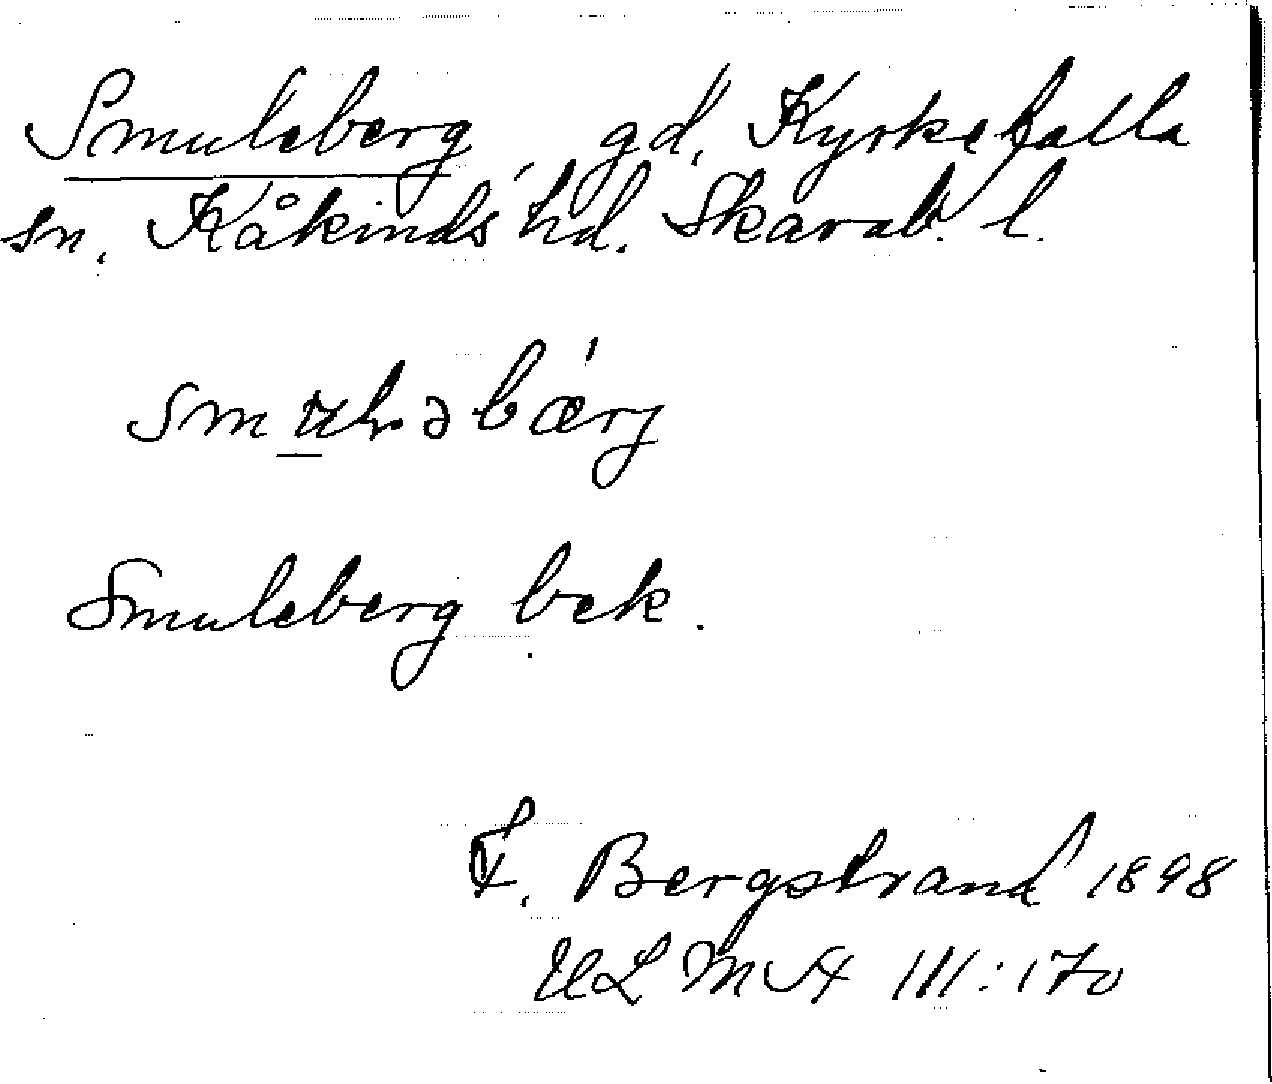 Smuleberg, gd, Kyrkefalla
sn, Kåkinds hd. Skarab. l.
smuləbærj
Smuleberg bek.
F. Bergstrand 1898
ULMA 111:170